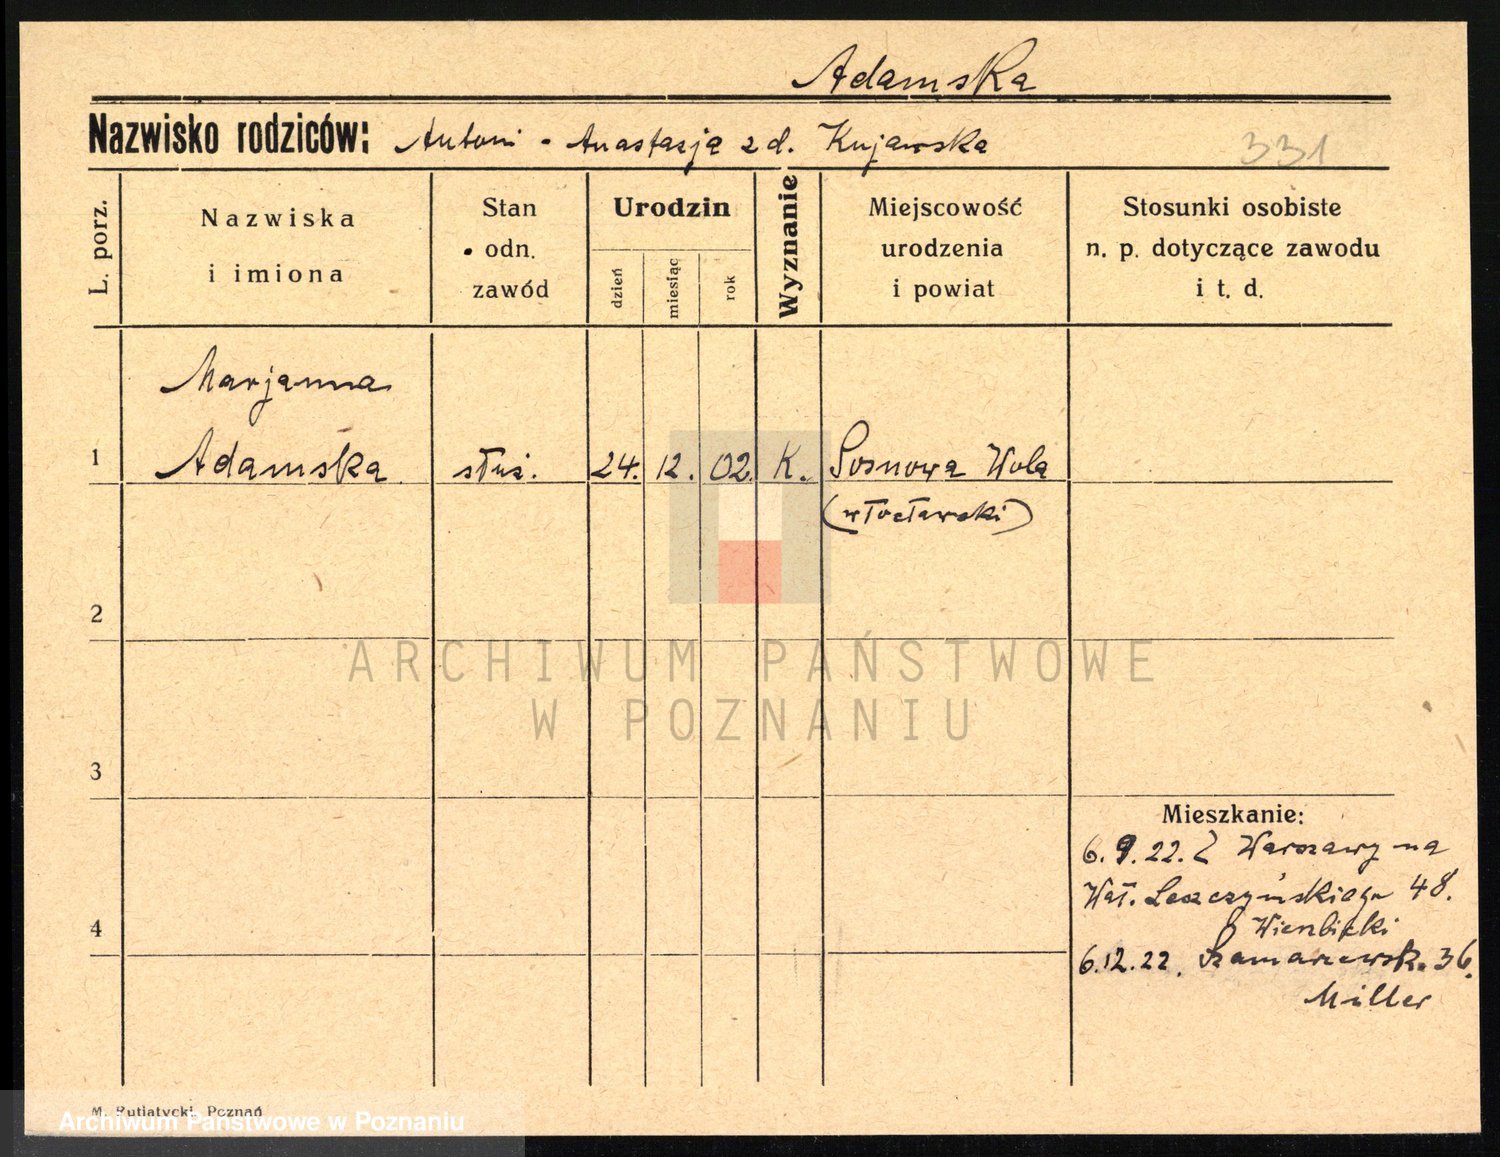 Adamska
Nazwisko rodziców: Antoni - Anastazja z d. Kujawska 331
L. porz.
Nazwiska
i imiona
Stan
odn.
zawód
Urodzin
dzień
miesiąc
rok
Wyznanie
Miejscowość
urodzenia
i powiat
Stosunki osobiste
n. p. dotyczące zawodu
i t. d.
Marjanna
1 Adamska służ. 24. 12. 02. K. Sosnowa Wola
(włocławski)
2
ARCHIWUM PAŃSTWOWE
W POZNANIU
3
Mieszkanie:
6.9.22. Z Warszawy na
Wał. Leszczyńskiego 48.
Wienbicki
4
6.12.22. Szamarzewsk. 36.
Miller
M. Putiatycki, Poznań
Archiwum Państwowe w Poznaniu